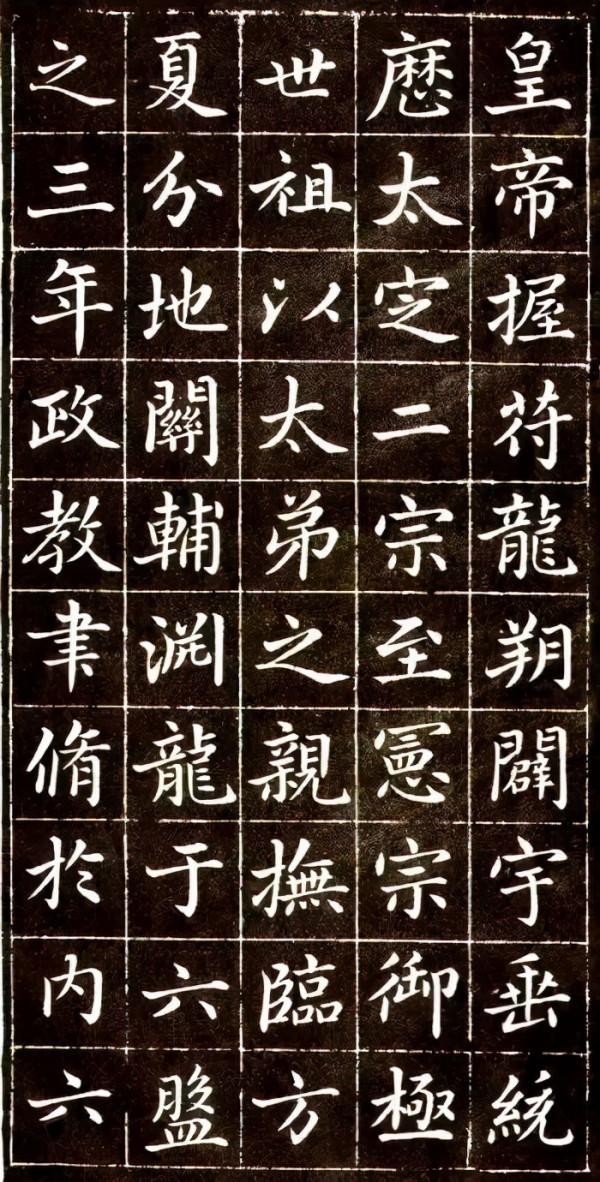 皇帝握苻龍朔闢宇垂統
歷太定二宗至憲宗御極
世祖以太弟之親撫臨方
夏分地關輔淵龍于六盤
之三年政教聿脩於内六